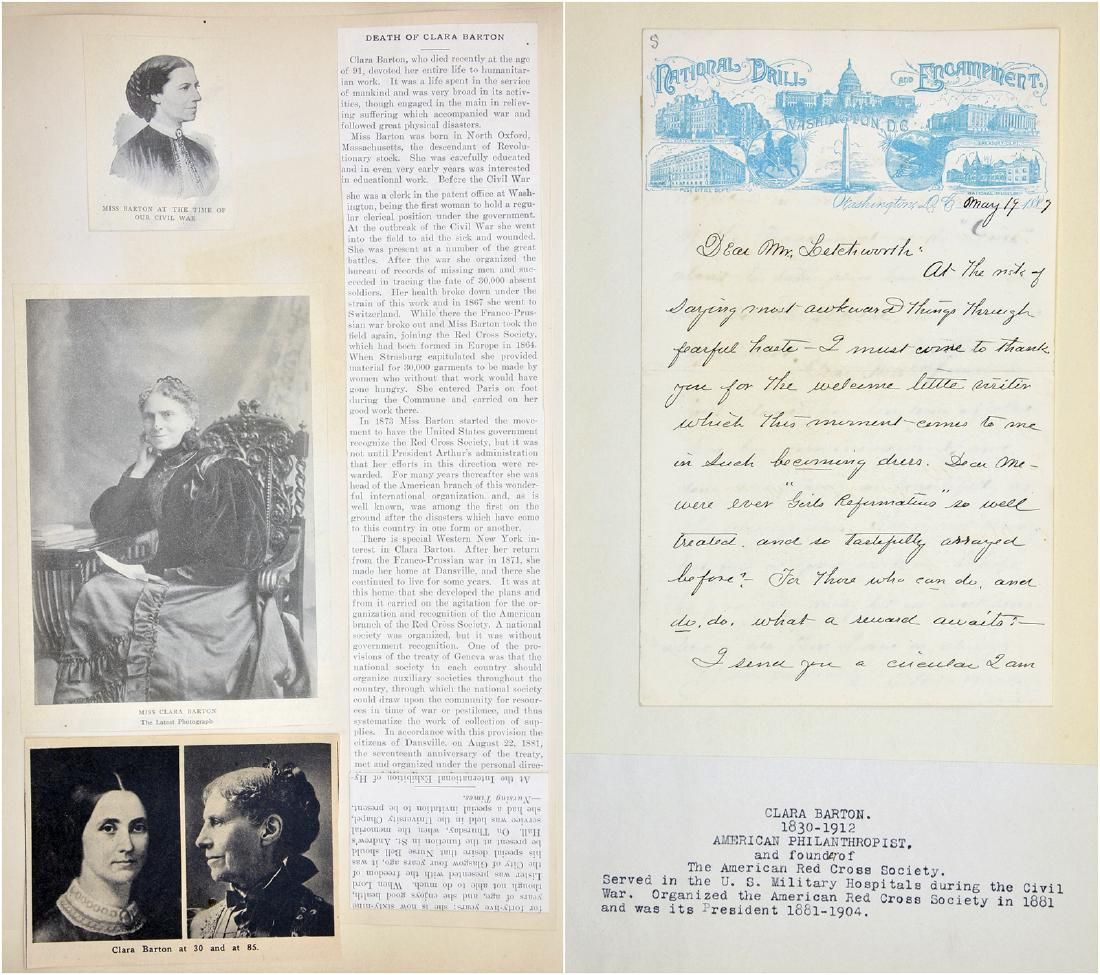 MISS BARTON AT THE TIME OF
OUR CIVIL WAR
MISS CLARA BARTON
The Latest Photograph
Clara Barton at 30 and at 85.
DEATH OF CLARA BARTON
Clara Barton, who died recently at the age
of 91, devoted her entire life to humanitar-
ian work. It was a life spent in the service
of mankind and was very broad in its activ-
ities, though engaged in the main in reliev-
ing suffering which accompanied war and
followed great physical disasters.
Miss Barton was born in North Oxford,
Massachusetts, the descendant of Revolu-
tionary stock. She was carefully educated
and in even very early years was interested
in educational work. Before the Civil War
she was a clerk in the patent office at Wash-
ington, being the first woman to hold a regu-
lar clerical position under the government.
At the outbreak of the Civil War she went
into the field to aid the sick and wounded.
She was present at a number of the great
battles. After the war she organized the
bureau of records of missing men and suc-
ceeded in tracing the fate of 30,000 absent
soldiers. Her health broke down under the
strain of this work and in 1867 she went to
Switzerland. While there the Franco-Prus-
sian war broke out and Miss Barton took the
field again, joining the Red Cross Society,
which had been formed in Europe in 1864.
When Strasburg capitulated she provided
material for 30,000 garments to be made by
women who without that work would have
gone hungry. She entered Paris on foot
during the Commune and carried on her
good work there.
In 1873 Miss Barton started the move-
ment to have the United States government
recognize the Red Cross Society, but it was
not until President Arthur's administration
that her efforts in this direction were re-
warded. For many years thereafter she was
head of the American branch of this wonder-
ful international organization and, as is
well known, was among the first on the
ground after the disasters which have come
to this country in one form or another.
There is special Western New York in-
terest in Clara Barton. After her return
from the Franco-Prussian war in 1871, she
made her home at Dansville, and there she
continued to live for some years. It was at
this home that she developed the plans and
from it carried on the agitation for the or-
ganization and recognition of the American
branch of the Red Cross Society. A national
society was organized, but it was without
government recognition. One of the pro-
visions of the treaty of Geneva was that the
national society in each country should
organize auxiliary societies throughout the
country, through which the national society
could draw upon the community for resour-
ces in time of war or pestilence, and thus
systematize the work of collection of sup-
plies. In accordance with this provision the
citizens of Dansville, on August 22, 1881,
the seventeenth anniversary of the treaty,
met and organized under the personal direc-
for forty-five years; she is now sixty-nine
years of age, and she enjoys good health,
though not able to do much. When Lord
Lister was presented with the freedom of
the City of Glasgow four years ago, it was
his special desire that Nurse Bell should
be present at the function in St. Andrew's
Hall. On Thursday, when the memorial
service was held in the University Chapel,
she had a special invitation to be present.
—Nursing Times.
At the International Exhibition of Hy-
S
NATIONAL DRILL AND ENCAMPMENT.
WASHINGTON, D.C.
NATIONAL MUSEUM
Washington, D.C. May 19 1887
Dear Mr. Letchworth:
At the risk of
saying most awkward things through
fearful haste - I must come to thank
you for the welcome little visitor
which this moment comes to me
in such becoming dress. Dear me -
were ever "Girls Reformatories" so well
treated, and so tastefully arrayed
before? - For those who can do, and
do, do, what a reward awaits! -
I send you a circular I am
CLARA BARTON.
1830-1912
AMERICAN PHILANTHROPIST,
and founder of
The American Red Cross Society.
Served in the U. S. Military Hospitals during the Civil
War. Organized the American Red Cross Society in 1881
and was its President 1881-1904.